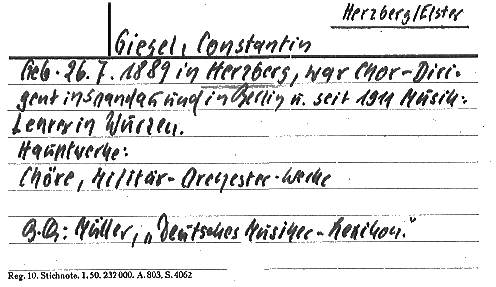 Herzberg/Elster
Giesel, Constantin
Geb. 26.7.1889 in Herzberg, war Chor-Diri-
gent in Spandau und in Berlin u. seit 1911 Musik-
Lehrer in Wurzen.
Hauptwerke:
Chöre, Militär-Orchester-Werke
B.Q.: Müller, „Deutsches Musiker-Lexikon."
Reg. 10. Stichnote. 1. 50. 232 000. A. 803, S. 4062